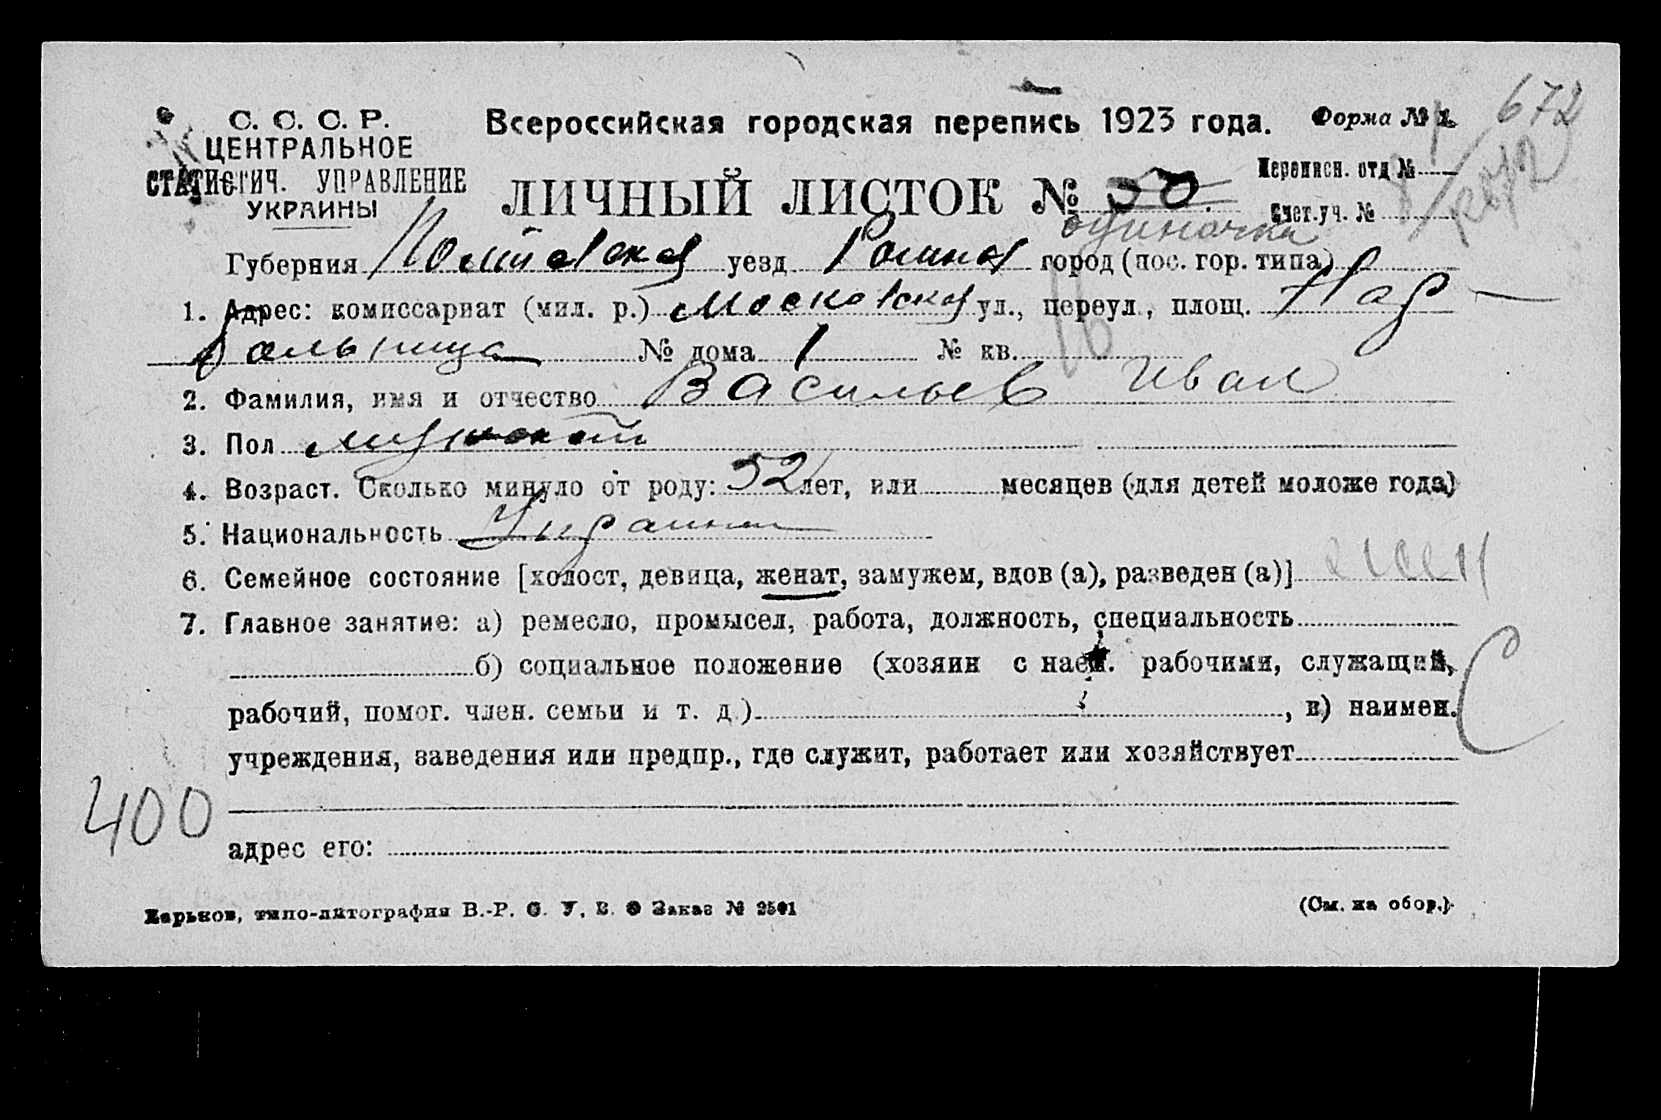 С. С. С. Р.
ЦЕНТРАЛЬНОЕ
СТАТИСТИЧ. УПРАВЛЕНИЕ
УКРАИНЫ
Всероссийская городская перепись 1923 года.
Форма №
672
Переписн. отд №
Счет.уч. №
ЛИЧНЫЙ ЛИСТОК № 50.
одиночка
Губерния Полтавская уезд Ромны город (пос. гор. типа)
1. Адрес: комиссариат (мил. р.) Московская ул., переул., площ. Нар-
больница № дома 1 № кв.
16
2. Фамилия, имя и отчество Васильев Иван
3. Пол мужской
4. Возраст. Сколько минуло от роду: 52 лет, или месяцев (для детей моложе года)
5. Национальность Украин
6. Семейное состояние [холост, девица, женат, замужем, вдов (а), разведен (а)]
7. Главное занятие: а) ремесло, промысел, работа, должность, специальность
б) социальное положение (хозяин с наем. рабочими, служащий,
рабочий, помог. член. семьи и т. д.) , в) наимен.
С
учреждения, заведения или предпр., где служит, работает или хозяйствует
400
адрес его:
Харьков, типо-литография В.-Р. С. У. В. О Заказ №
(См. на обор.)